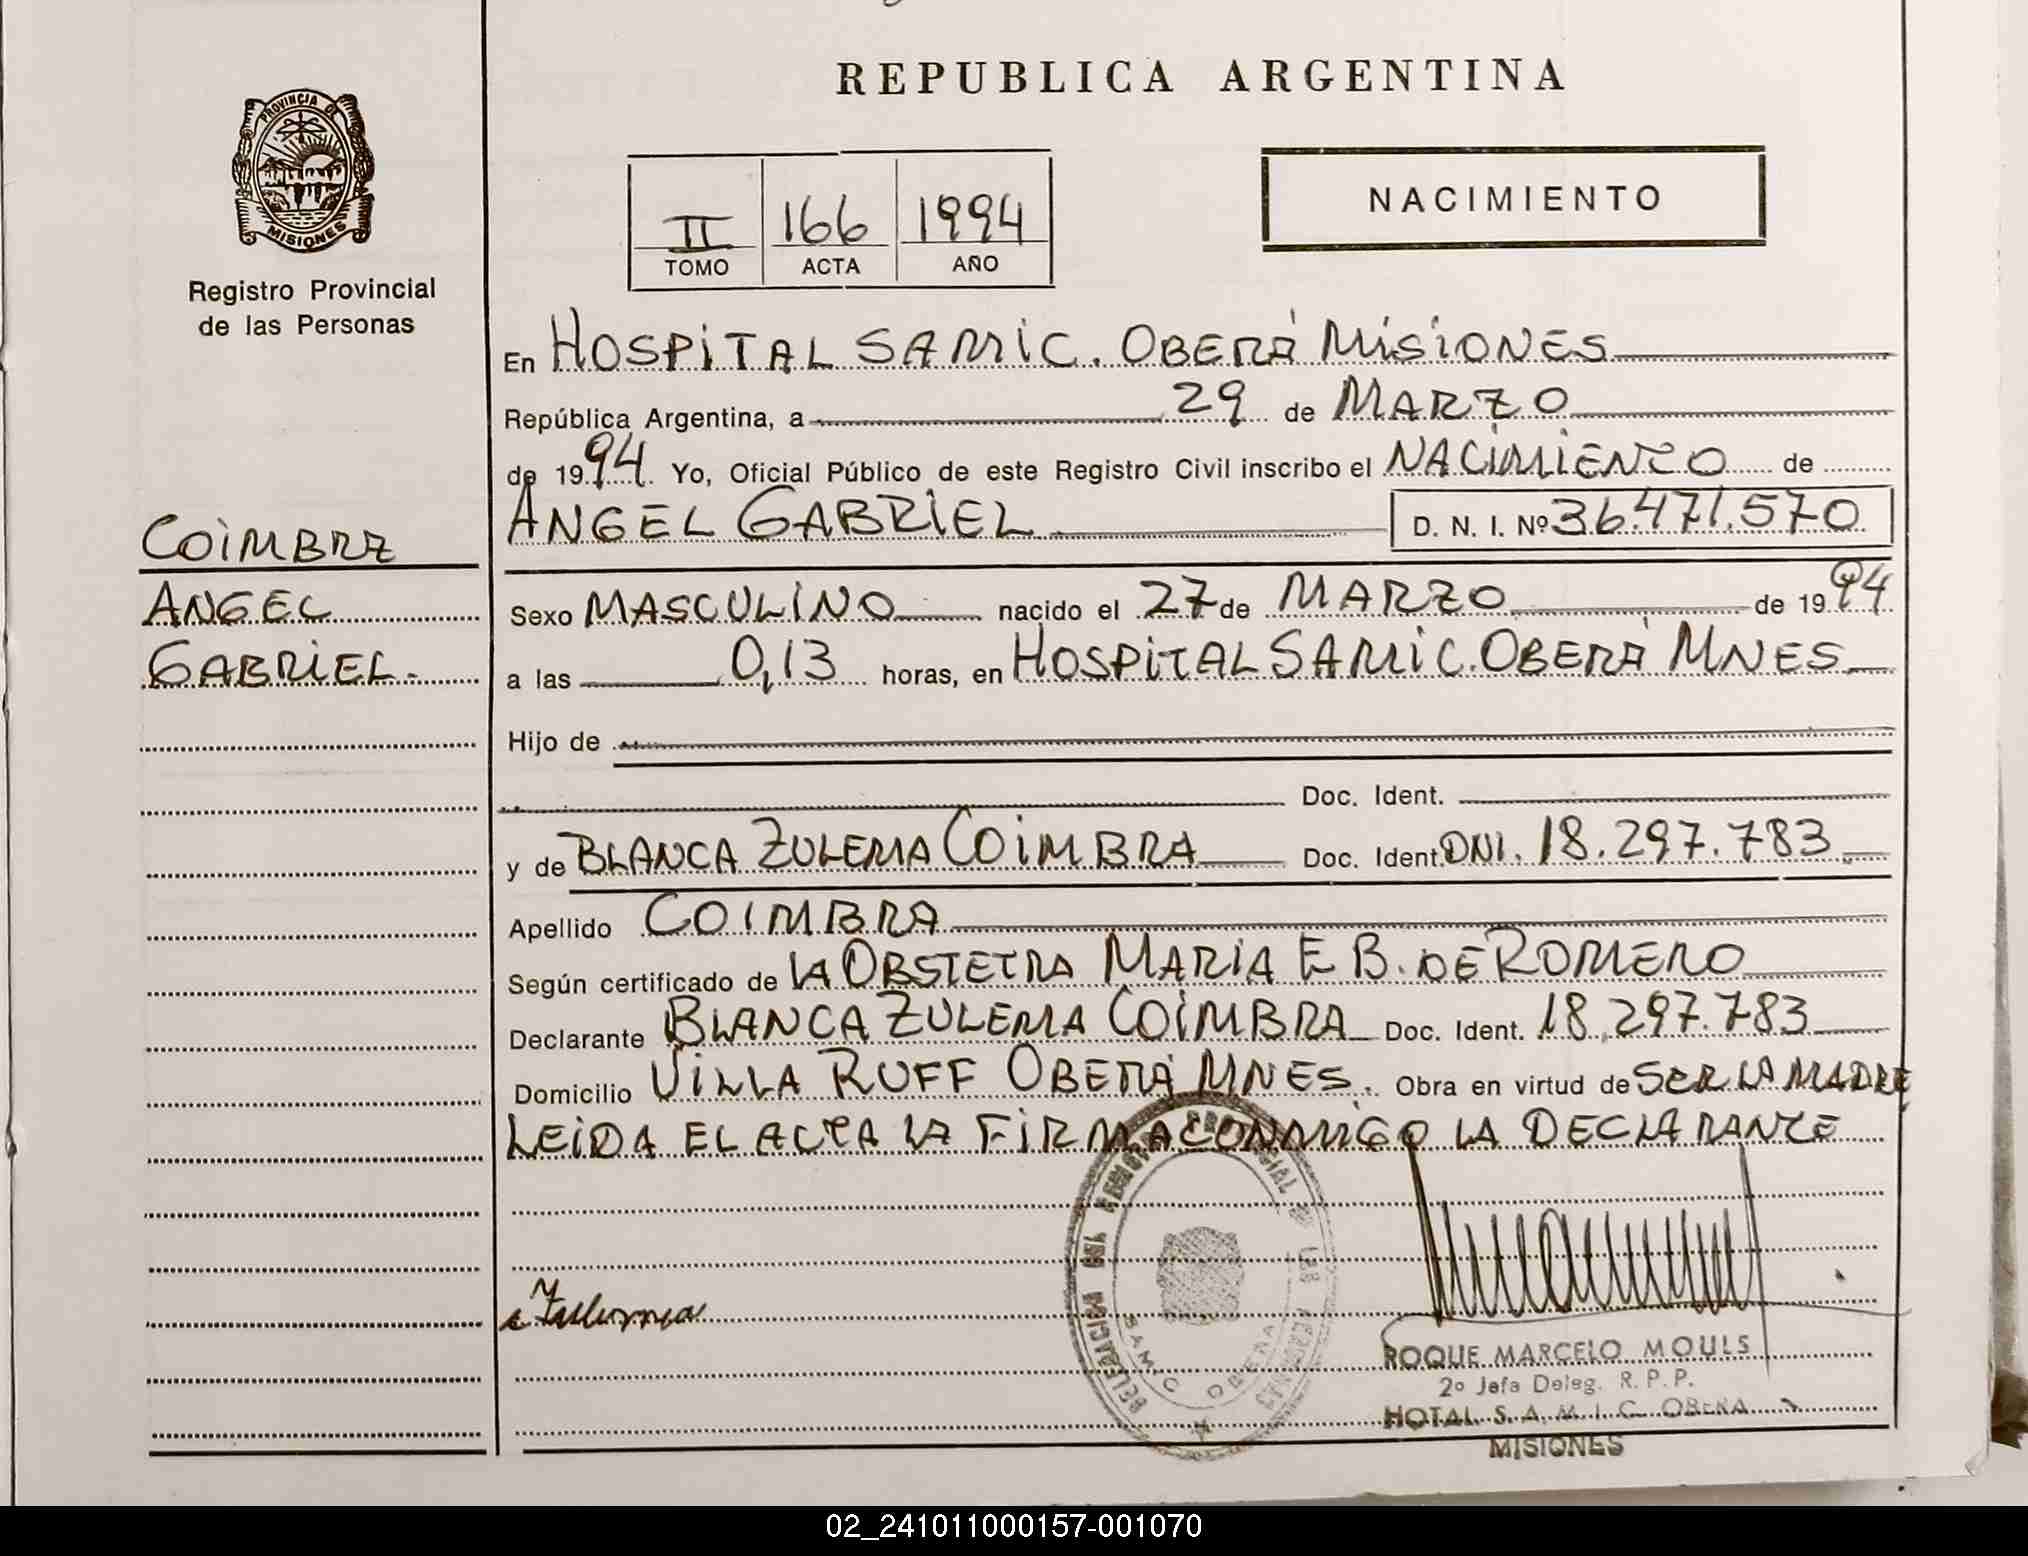 REPUBLICA ARGENTINA
PROVINCIA DE
MISIONES
Registro Provincial
de las Personas
II 166 1994
TOMO ACTA AÑO
NACIMIENTO
En HOSPITAL SAMIC. OBERÁ MISIONES
República Argentina, a 29 de MARZO
de 1994. Yo, Oficial Público de este Registro Civil inscribo el NACIMIENTO de
ANGEL GABRIEL D. N. I. Nº 36.471.570
COIMBRA
ANGEL
GABRIEL.
Sexo MASCULINO nacido el 27 de MARZO de 1994
a las 0,13 horas, en HOSPITAL SAMIC. OBERÁ MNES
Hijo de
Doc. Ident.
y de BLANCA ZULEMA COIMBRA Doc. Ident. DNI. 18.297.783
Apellido COIMBRA
Según certificado de LA OBSTETRA MARIA E B. DE ROMERO
Declarante BLANCA ZULEMA COIMBRA Doc. Ident. 18.297.783
Domicilio VILLA RUFF OBERÁ MNES. Obra en virtud de SER LA MADRE
LEIDA EL ACTA LA FIRMA CONMIGO LA DECLARANTE
DELEGACION DEL REGISTRO PROVINCIAL DE LAS PERSONAS
SAMIC OBERA
ROQUE MARCELO MOULS
2º Jefe Deleg. R. P. P.
HOTAL S. A. M. I. C. OBERA
MISIONES
02_241011000157-001070